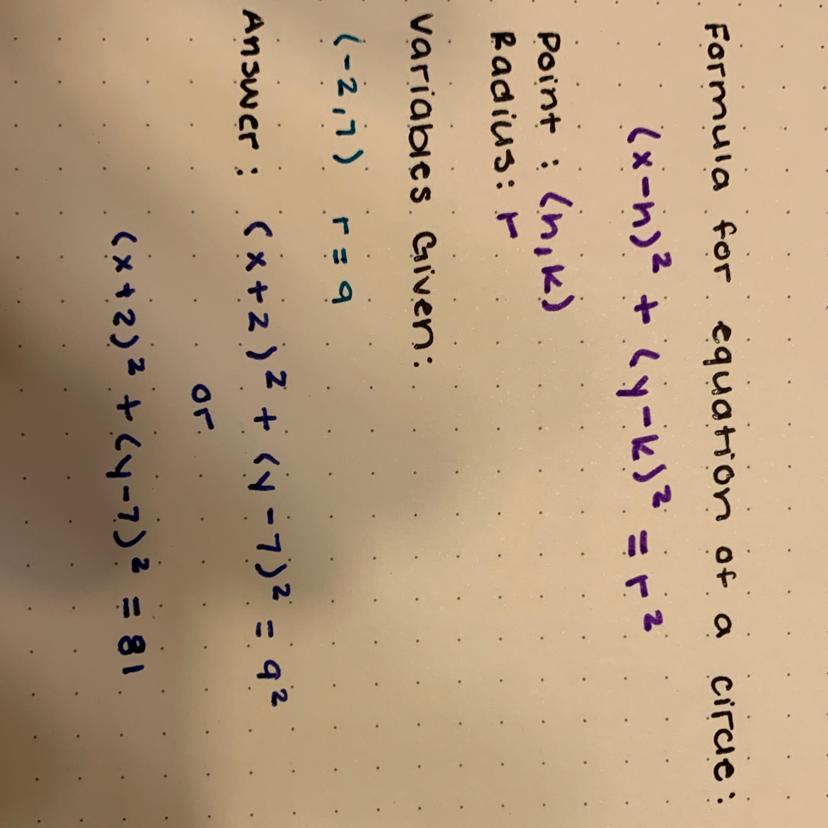 Formula for equation of a circle:
(x-h)² + (y-k)² = r²
Point: (h,k)
Radius: r
Variables Given:
(-2,7) r=9
Answer: (x+2)² + (y-7)² = 9²
or
(x+2)² + (y-7)² = 81